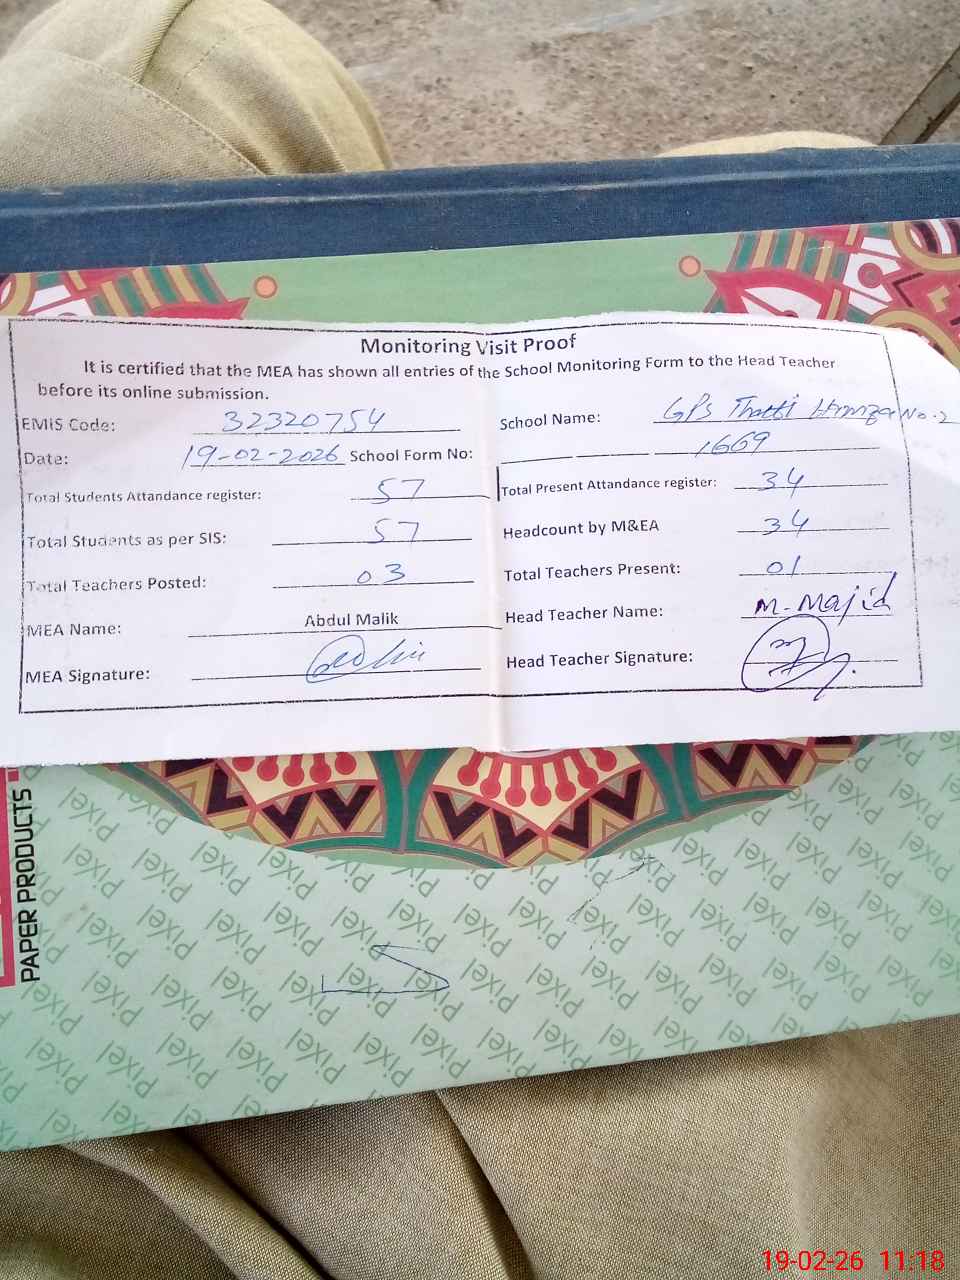 Monitoring Visit Proof
It is certified that the MEA has shown all entries of the School Monitoring Form to the Head Teacher
before its online submission.
EMIS Code: 32320754 School Name: GPS Thatti Hamza No.2
Date: 19-02-2026 School Form No: 1669
Total Students Attandance register: 57 Total Present Attandance register: 34
Total Students as per SIS: 57 Headcount by M&EA 34
Total Teachers Posted: 03 Total Teachers Present: 01
MEA Name: Abdul Malik Head Teacher Name: M. Majid
MEA Signature: Head Teacher Signature:
PAPER PRODUCTS
Pixel
19-02-26 11:18